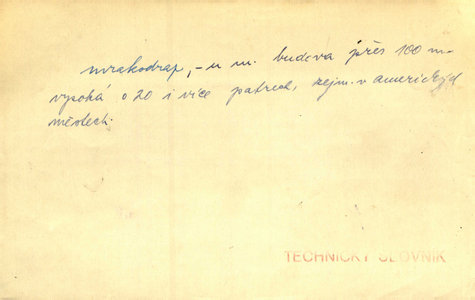 mrakodrap, -u m. budova přes 100 m
vysoká o 20 i více patrech, zejm. v amerických
městech.
TECHNICKÝ SLOVNÍK